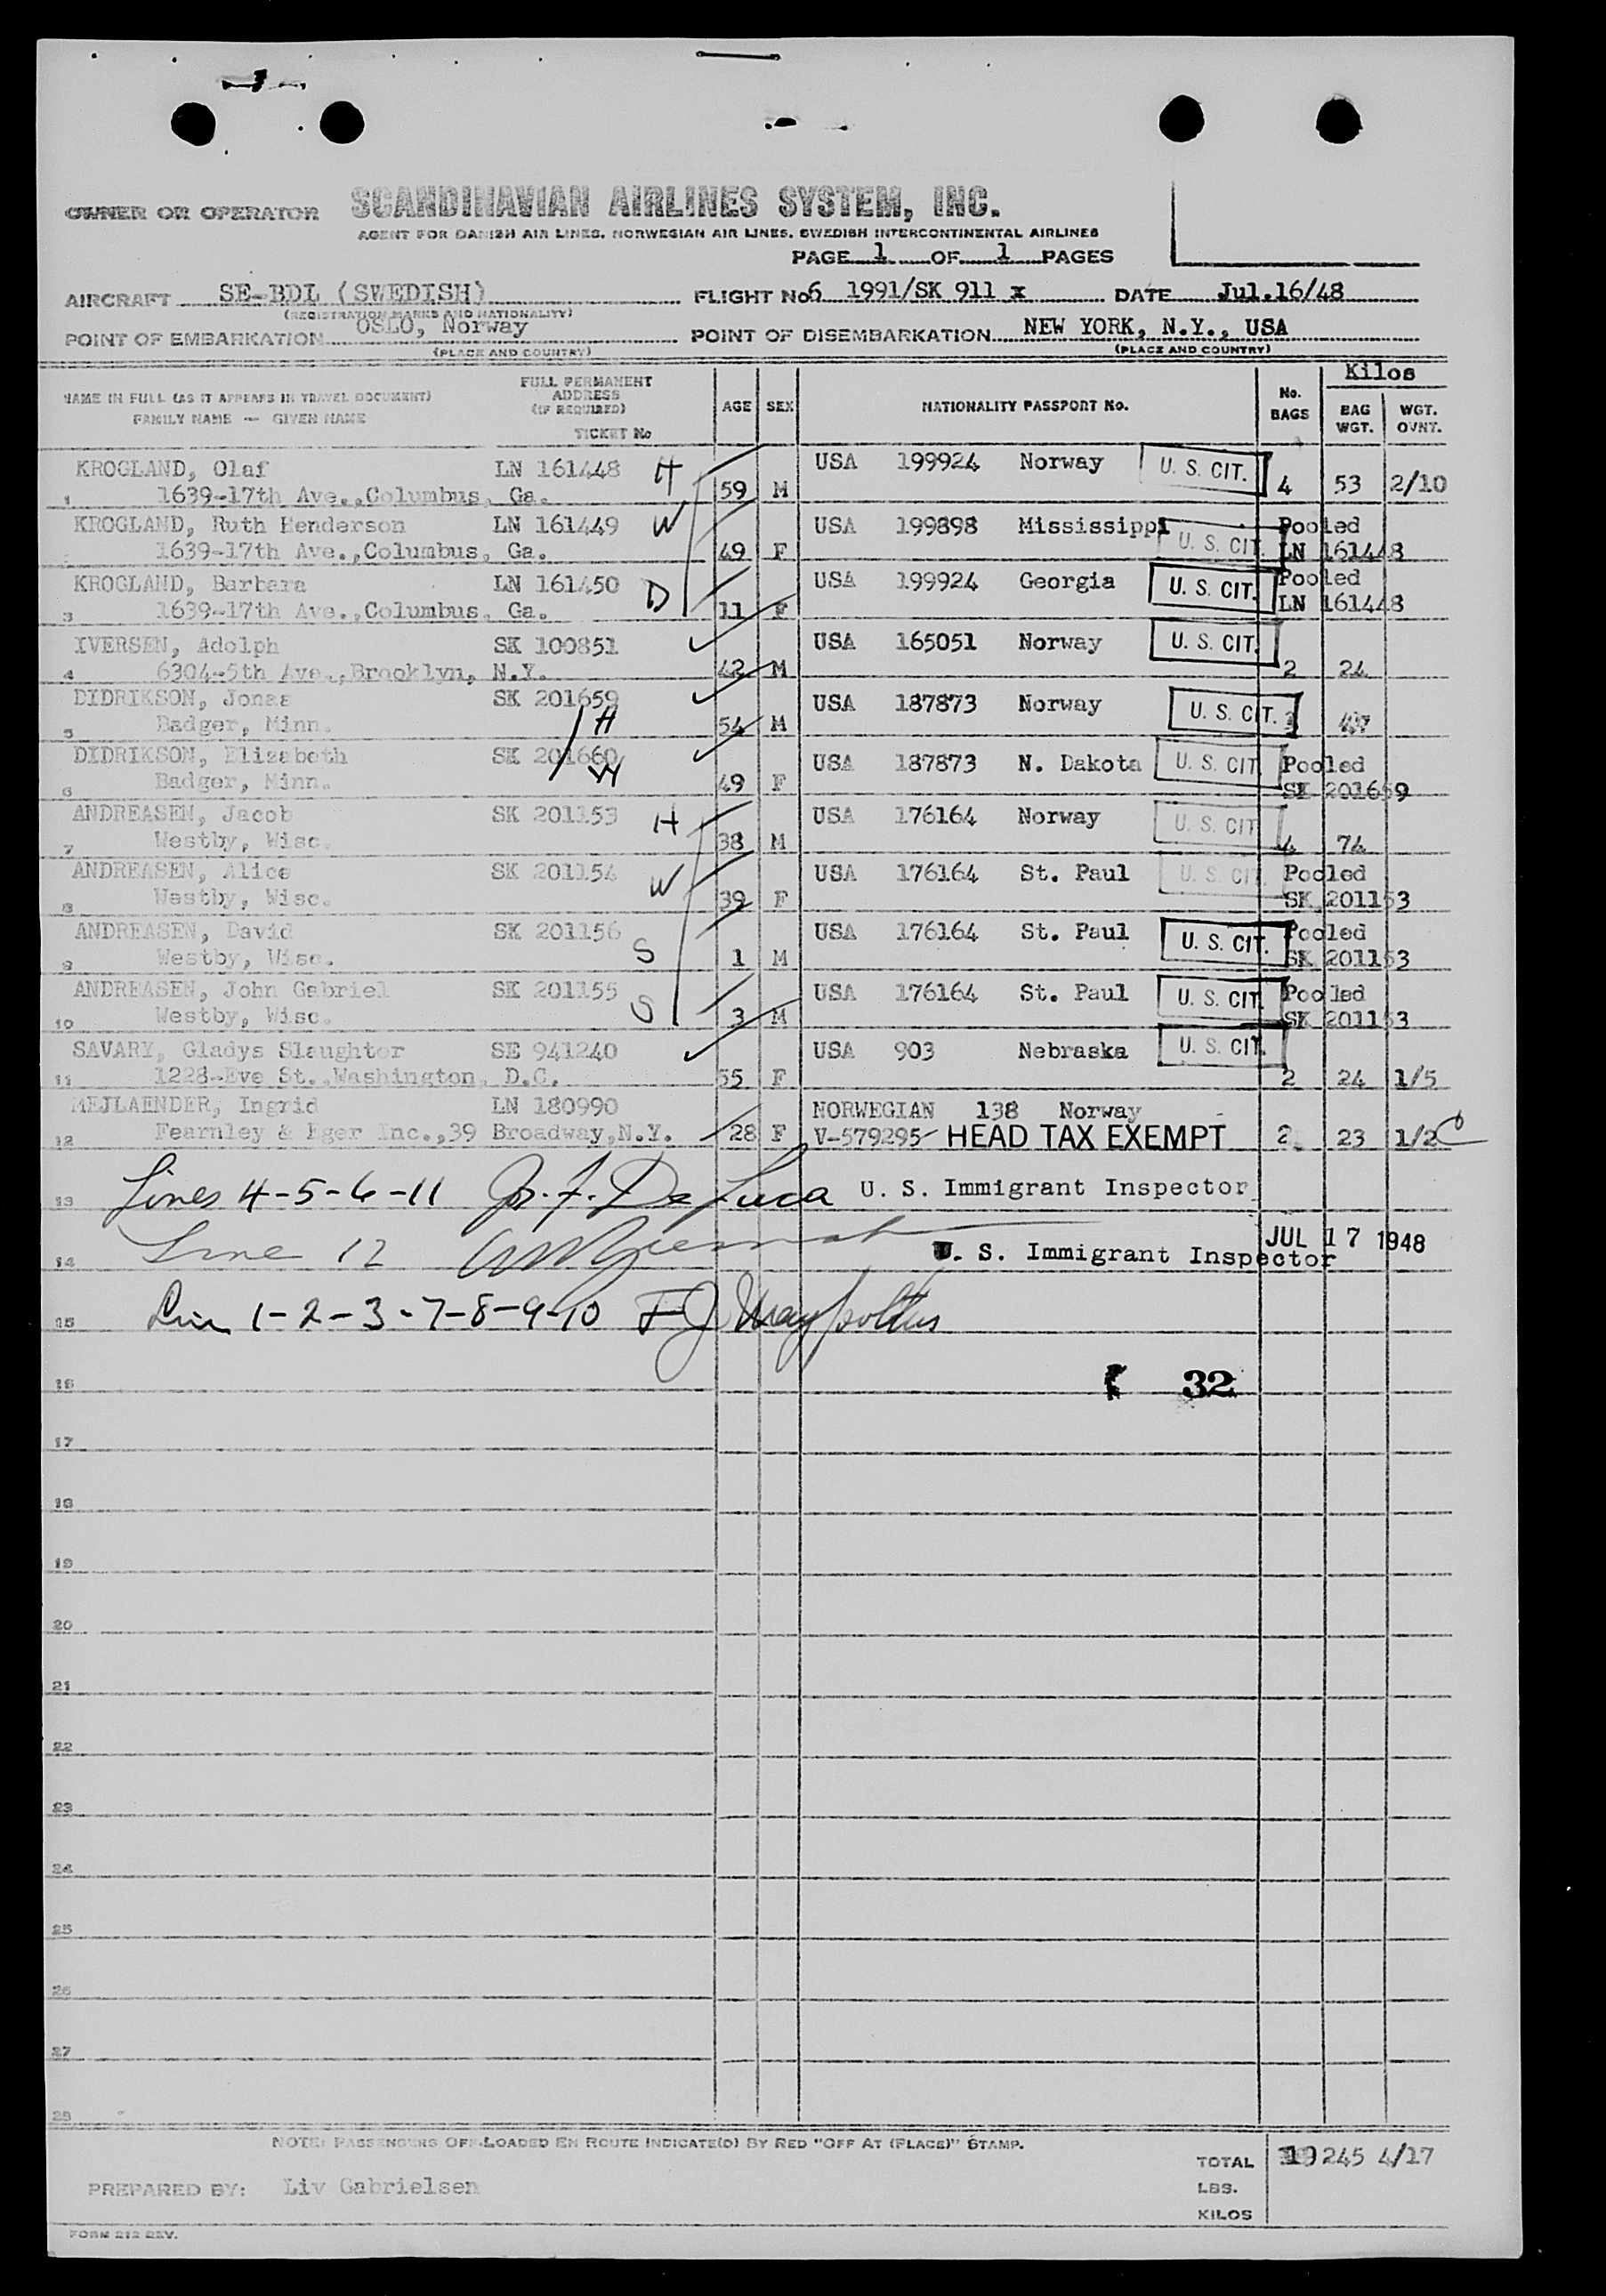 OWNER OR OPERATOR SCANDINAVIAN AIRLINES SYSTEM, INC.
AGENT FOR DANISH AIR LINES, NORWEGIAN AIR LINES, SWEDISH INTERCONTINENTAL AIRLINES
PAGE 1 OF 1 PAGES
AIRCRAFT SE-BDL (SWEDISH) FLIGHT No6 1991/SK 911 x DATE Jul.16/48
(REGISTRATION MARKS AND NATIONALITY)
POINT OF EMBARKATION OSLO, Norway POINT OF DISEMBARKATION NEW YORK, N.Y., USA
(PLACE AND COUNTRY) (PLACE AND COUNTRY)
NAME IN FULL (AS IT APPEARS IN TRAVEL DOCUMENT)
FAMILY NAME — GIVEN NAME
FULL PERMANENT
ADDRESS
(IF REQUIRED)
TICKET No
AGE SEX NATIONALITY PASSPORT No.
No.
BAGS
Kilos
BAG
WGT.
WGT.
OVNT.
KROGLAND, Olaf LN 161448 H USA 199924 Norway U. S. CIT.
1 1639-17th Ave.,Columbus, Ga. 59 M 4 53 2/10
KROGLAND, Ruth Henderson LN 161449 W USA 199898 Mississippi U. S. CIT. Pooled
1639-17th Ave.,Columbus, Ga. 49 F LN 161448
KROGLAND, Barbara LN 161450 D USA 199924 Georgia U. S. CIT. Pooled
3 1639-17th Ave.,Columbus, Ga. 11 F LN 161448
IVERSEN, Adolph SK 100851 USA 165051 Norway U. S. CIT.
4 6304-5th Ave.,Brooklyn, N.Y. 42 M 2 24
DIDRIKSON, Jonas SK 201659 H USA 187873 Norway U. S. CIT.
5 Badger, Minn. 54 M
DIDRIKSON, Elizabeth SK 201660 W USA 187873 N. Dakota U. S. CIT Pooled
6 Badger, Minn. 49 F SK 201659
ANDREASEN, Jacob SK 201153 H USA 176164 Norway U. S. CIT
7 Westby, Wisc. 38 M 4 74
ANDREASEN, Alice SK 201154 W USA 176164 St. Paul U. S. CIT Pooled
8 Westby, Wisc. 39 F SK 201153
ANDREASEN, David SK 201156 S USA 176164 St. Paul U. S. CIT. Pooled
9 Westby, Wisc. 1 M SK 201153
ANDREASEN, John Gabriel SK 201155 S USA 176164 St. Paul U. S. CIT. Pooled
10 Westby, Wisc. 3 M SK 201153
SAVARY, Gladys Slaughter SE 941240 USA 903 Nebraska U. S. CIT.
11 1228-Eye St.,Washington, D.C. 55 F 2 24 1/5
MEJLAENDER, Ingrid LN 180990 NORWEGIAN 138 Norway
12 Fearnley & Eger Inc.,39 Broadway,N.Y. 28 F V-579295 HEAD TAX EXEMPT 2 23 1/2
13 Lines 4-5-6-11 Jos. F. De Luca U. S. Immigrant Inspector
JUL 17 1948
14 Line 12 U. S. Immigrant Inspector
15 Lin 1-2-3-7-8-9-10 F J
16 32
17
18
19
20
21
22
23
24
25
26
27
28
NOTE: PASSENGERS OFF-LOADED EN ROUTE INDICATE(D) BY RED "OFF AT (PLACE)" STAMP.
TOTAL 19 245 4/17
PREPARED BY: Liv Gabrielsen LBS.
KILOS
FORM 212 REV.